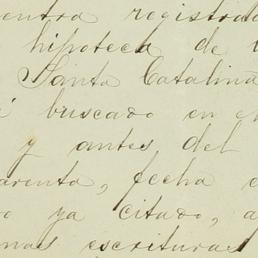 entra registrada
hipoteca de
Santa Catalina
buscado en
y antes del
arenta, fecha
ya citado, a
nas escrituras